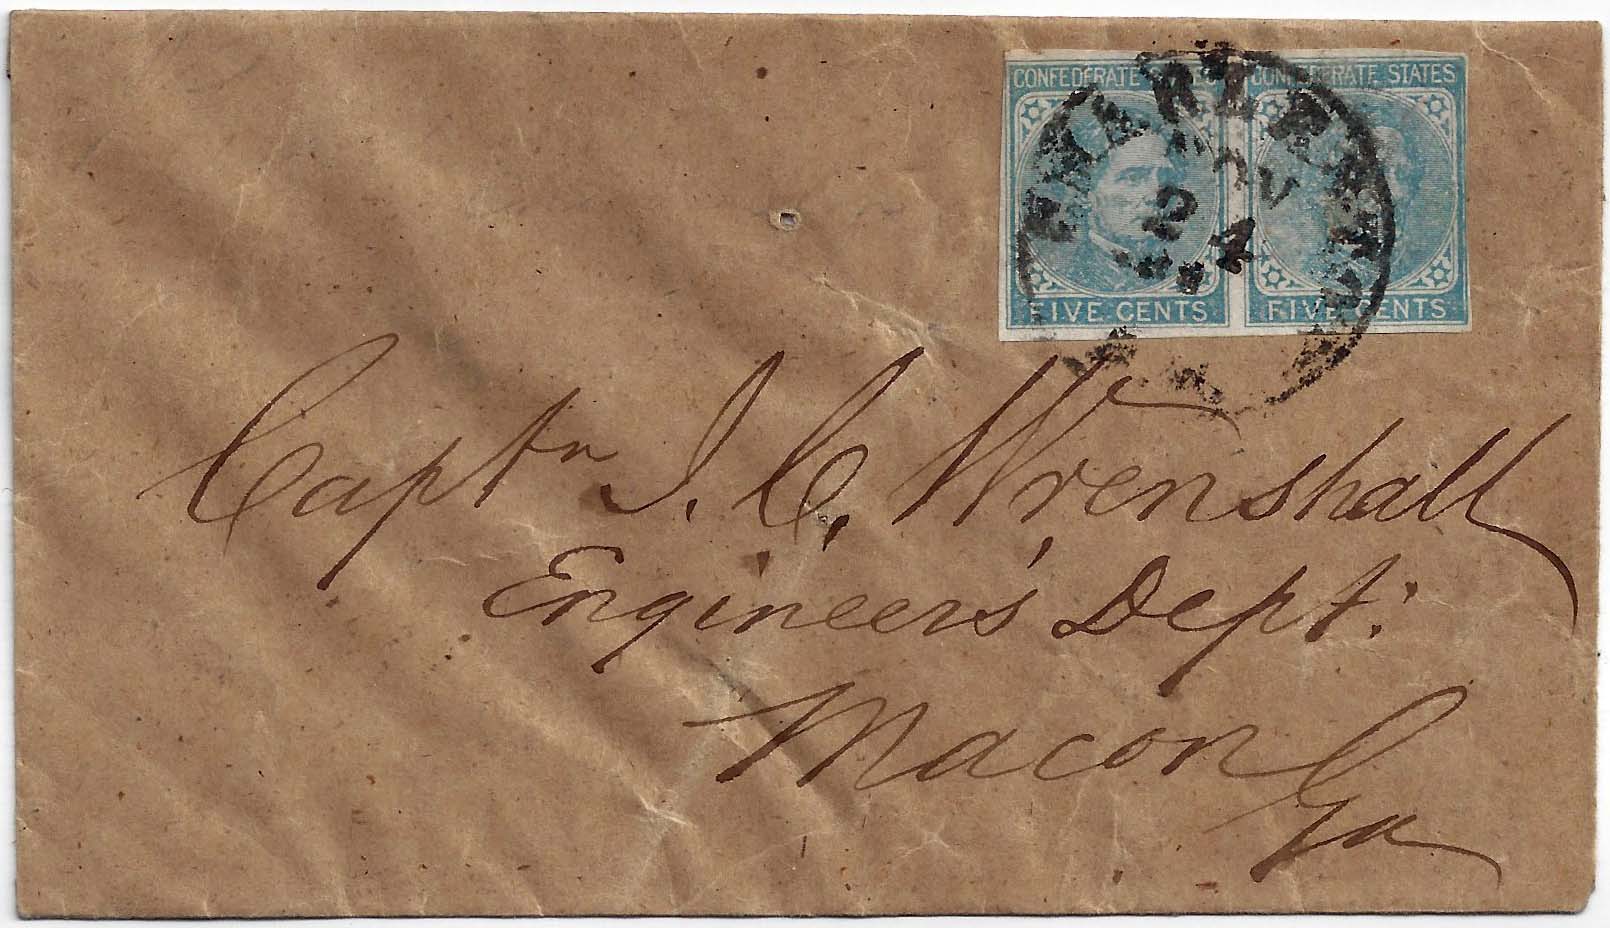 CONFEDERATE CONFEDERATE STATES
CHARLESTON
NOV
24
FIVE CENTS FIVE CENTS
Captn J. C. Wrenshall
Engineer's Dept:
Macon
Ga